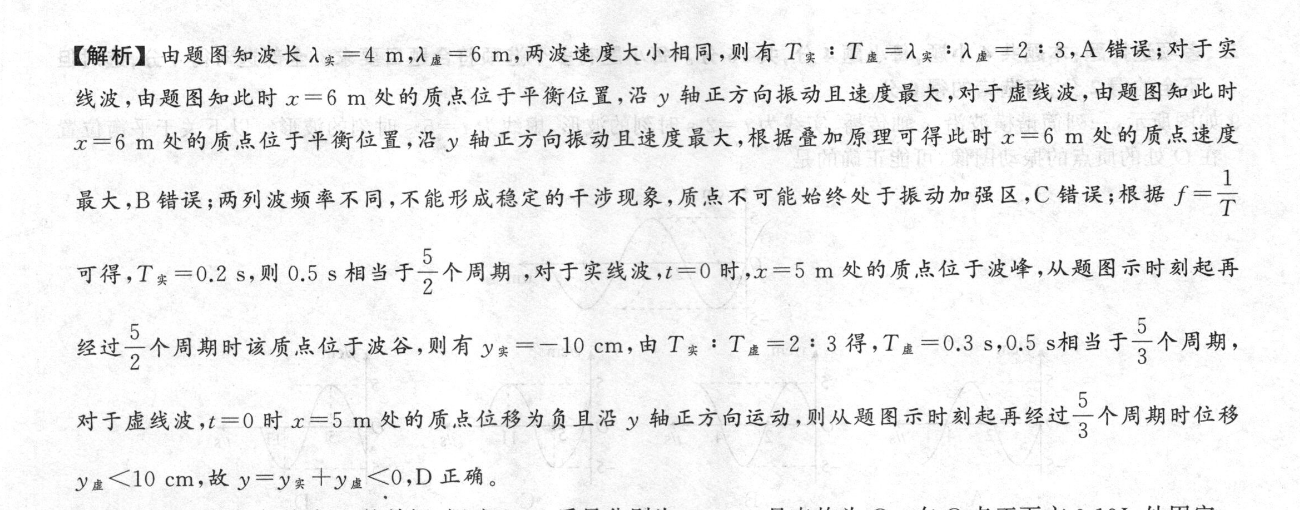 【解析】由题图知波长λ实=4 m,λ虚=6 m,两波速度大小相同,则有 T实∶T虚=λ实∶λ虚=2∶3,A 错误;对于实
线波,由题图知此时 x=6 m 处的质点位于平衡位置,沿 y 轴正方向振动且速度最大,对于虚线波,由题图知此时
x=6 m 处的质点位于平衡位置,沿 y 轴正方向振动且速度最大,根据叠加原理可得此时 x=6 m 处的质点速度
最大,B 错误;两列波频率不同,不能形成稳定的干涉现象,质点不可能始终处于振动加强区,C 错误;根据 f=1/T
可得,T实=0.2 s,则 0.5 s 相当于5/2个周期,对于实线波,t=0 时,x=5 m 处的质点位于波峰,从题图示时刻起再
经过5/2个周期时该质点位于波谷,则有 y实=-10 cm,由 T实∶T虚=2∶3 得,T虚=0.3 s,0.5 s相当于5/3个周期,
对于虚线波,t=0 时 x=5 m 处的质点位移为负且沿 y 轴正方向运动,则从题图示时刻起再经过5/3个周期时位移
y虚<10 cm,故 y=y实+y虚<0,D 正确。